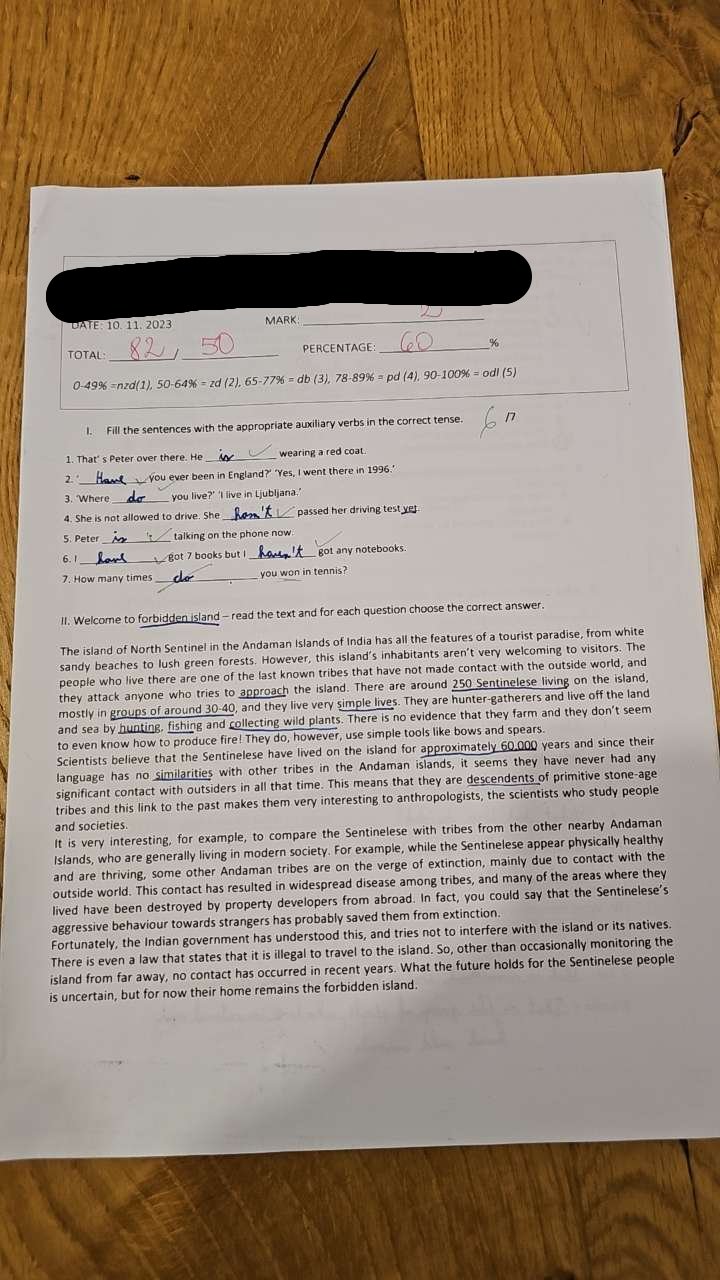 DATE: 10. 11. 2023 MARK: 2
TOTAL: 82 / 50 PERCENTAGE: 60 %
0-49% =nzd(1), 50-64% = zd (2), 65-77% = db (3), 78-89% = pd (4), 90-100% = odl (5)
I. Fill the sentences with the appropriate auxiliary verbs in the correct tense. 6 /7
1. That' s Peter over there. He is wearing a red coat.
2. ' Have you ever been in England?' 'Yes, I went there in 1996.'
3. 'Where do you live?' 'I live in Ljubljana.'
4. She is not allowed to drive. She hasn't passed her driving test yet.
5. Peter is talking on the phone now.
6. I have got 7 books but I haven't got any notebooks.
7. How many times do you won in tennis?
II. Welcome to forbidden island – read the text and for each question choose the correct answer.
The island of North Sentinel in the Andaman Islands of India has all the features of a tourist paradise, from white
sandy beaches to lush green forests. However, this island's inhabitants aren't very welcoming to visitors. The
people who live there are one of the last known tribes that have not made contact with the outside world, and
they attack anyone who tries to approach the island. There are around 250 Sentinelese living on the island,
mostly in groups of around 30-40, and they live very simple lives. They are hunter-gatherers and live off the land
and sea by hunting, fishing and collecting wild plants. There is no evidence that they farm and they don't seem
to even know how to produce fire! They do, however, use simple tools like bows and spears.
Scientists believe that the Sentinelese have lived on the island for approximately 60,000 years and since their
language has no similarities with other tribes in the Andaman islands, it seems they have never had any
significant contact with outsiders in all that time. This means that they are descendents of primitive stone-age
tribes and this link to the past makes them very interesting to anthropologists, the scientists who study people
and societies.
It is very interesting, for example, to compare the Sentinelese with tribes from the other nearby Andaman
Islands, who are generally living in modern society. For example, while the Sentinelese appear physically healthy
and are thriving, some other Andaman tribes are on the verge of extinction, mainly due to contact with the
outside world. This contact has resulted in widespread disease among tribes, and many of the areas where they
lived have been destroyed by property developers from abroad. In fact, you could say that the Sentinelese's
aggressive behaviour towards strangers has probably saved them from extinction.
Fortunately, the Indian government has understood this, and tries not to interfere with the island or its natives.
There is even a law that states that it is illegal to travel to the island. So, other than occasionally monitoring the
island from far away, no contact has occurred in recent years. What the future holds for the Sentinelese people
is uncertain, but for now their home remains the forbidden island.